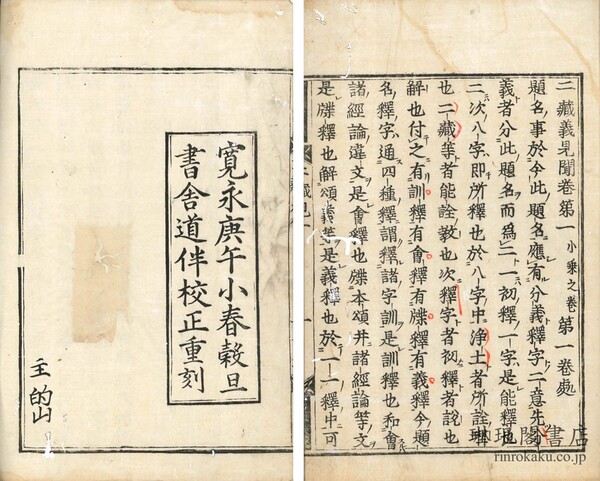 二藏義見聞卷第一 小乘之卷 第一卷處
題名事於今此題名應有分義釋字二意先分
義者分此題名而為二一初釋一字是能釋也
二次八字即所釋也於八字中淨土者所詮理
也二藏等者能詮教也次釋字者初釋者說也
解也付之有訓釋有會釋有牒釋有義釋今題
名釋字通四種釋謂釋諸字訓是訓釋也和會
諸經論違文是會釋也牒本頌并諸經論等文
是牒釋也解頌義等是義釋也於一一釋中可
寬永庚午小春穀旦
書舍道伴校正重刻
主 的
琳琅閣書店
rinrokaku.co.jp